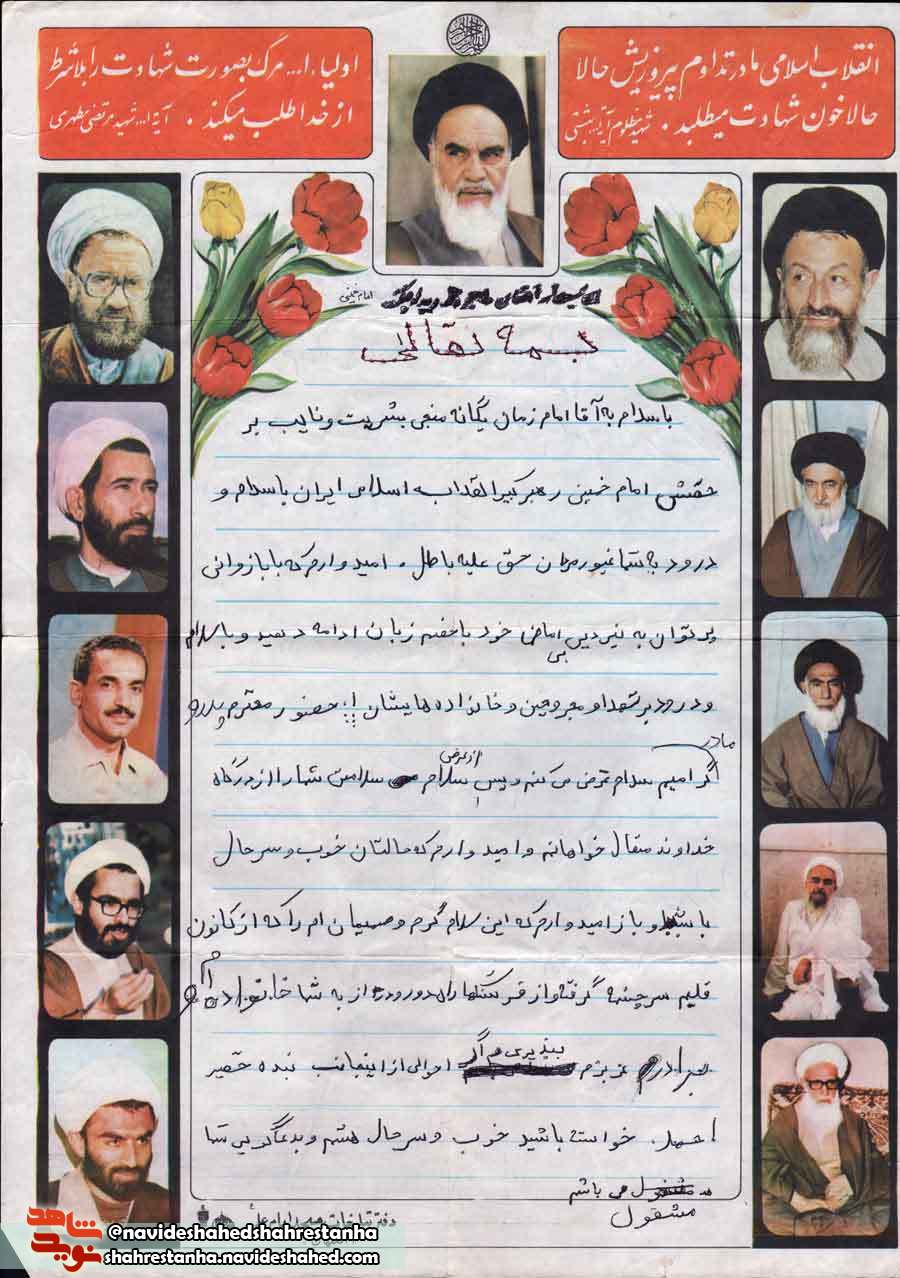 انقلاب اسلامی ما در تداوم پیروزیش حالا
حالا خون شهادت میطلبد . شهید مظلوم آیة ا... بهشتی
اولیاء ا... مرگ بصورت شهادت را بلاشرط
از خدا طلب میکند . آیة ا... شهید مرتضی مطهری
امام خمینی
بسمه تعالی
با سلام به آقا امام زمان یگانه منجی بشریت و نایب بر
حقش امام خمینی رهبر کبیر انقلاب اسلامی ایران با سلام و
درود به شما غیور مردان حق علیه باطل . امیدوارم که با بازوانی
پر توان به نبردیی امانی خود با خصم زبان ادامه دهید و با سلام
بی
و درود بر شهدا و مجروحین و خانواده هایشان حضور محترم پدر و
مادر
گرامیم سلام عرض می کنم و پس از عرض سلام سلامتی شما را از درگاه
خداوند متعال خواهانم و امیدوارم که حالتان خوب و سرحال
باشد و باز امیدوارم که این سلام گرم و صمیمان ام را که از کانون
قلبم سرچشمه گرفته و از فرسنگها راه دور به شما خانواده ام و
برادرم عزیزم بپذیری و اگر احوالی از اینجانب بنده حقیر
احمد خواسته باشید خوب و سرحال هستم و بدعاگویی شما
مشغول می باشم
مشغول
دفتر تبلیغات
شاهد
نوید
@navideshahedshahrestanha
shahrestanha.navideshahed.com